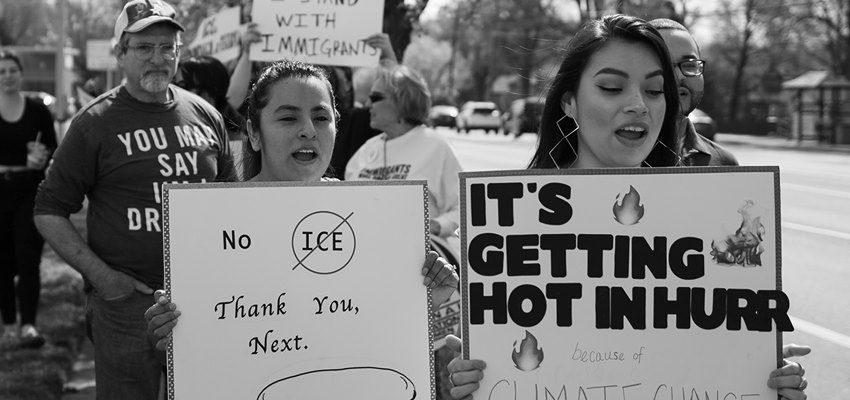 I STAND
WITH
IMMIGRANTS
YOU MAY
SAY
I'M A
DR
No ICE
Thank You,
Next.
IT'S
GETTING
HOT IN HURR
because of
CLIMATE CHANGE